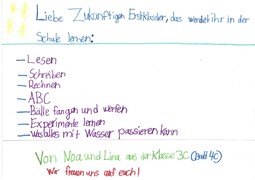 Liebe Zukünftigen Erstklässler, das werdet ihr in der
Schule lernen:
– Lesen
– Schreiben
– Rechnen
– ABC
– Bälle fangen und werfen
– Experimente lernen
– was alles mit Wasser passieren kann
Von Noa und Lina aus der Klasse 3C (Bald 4C)
Wir freuen uns auf euch!